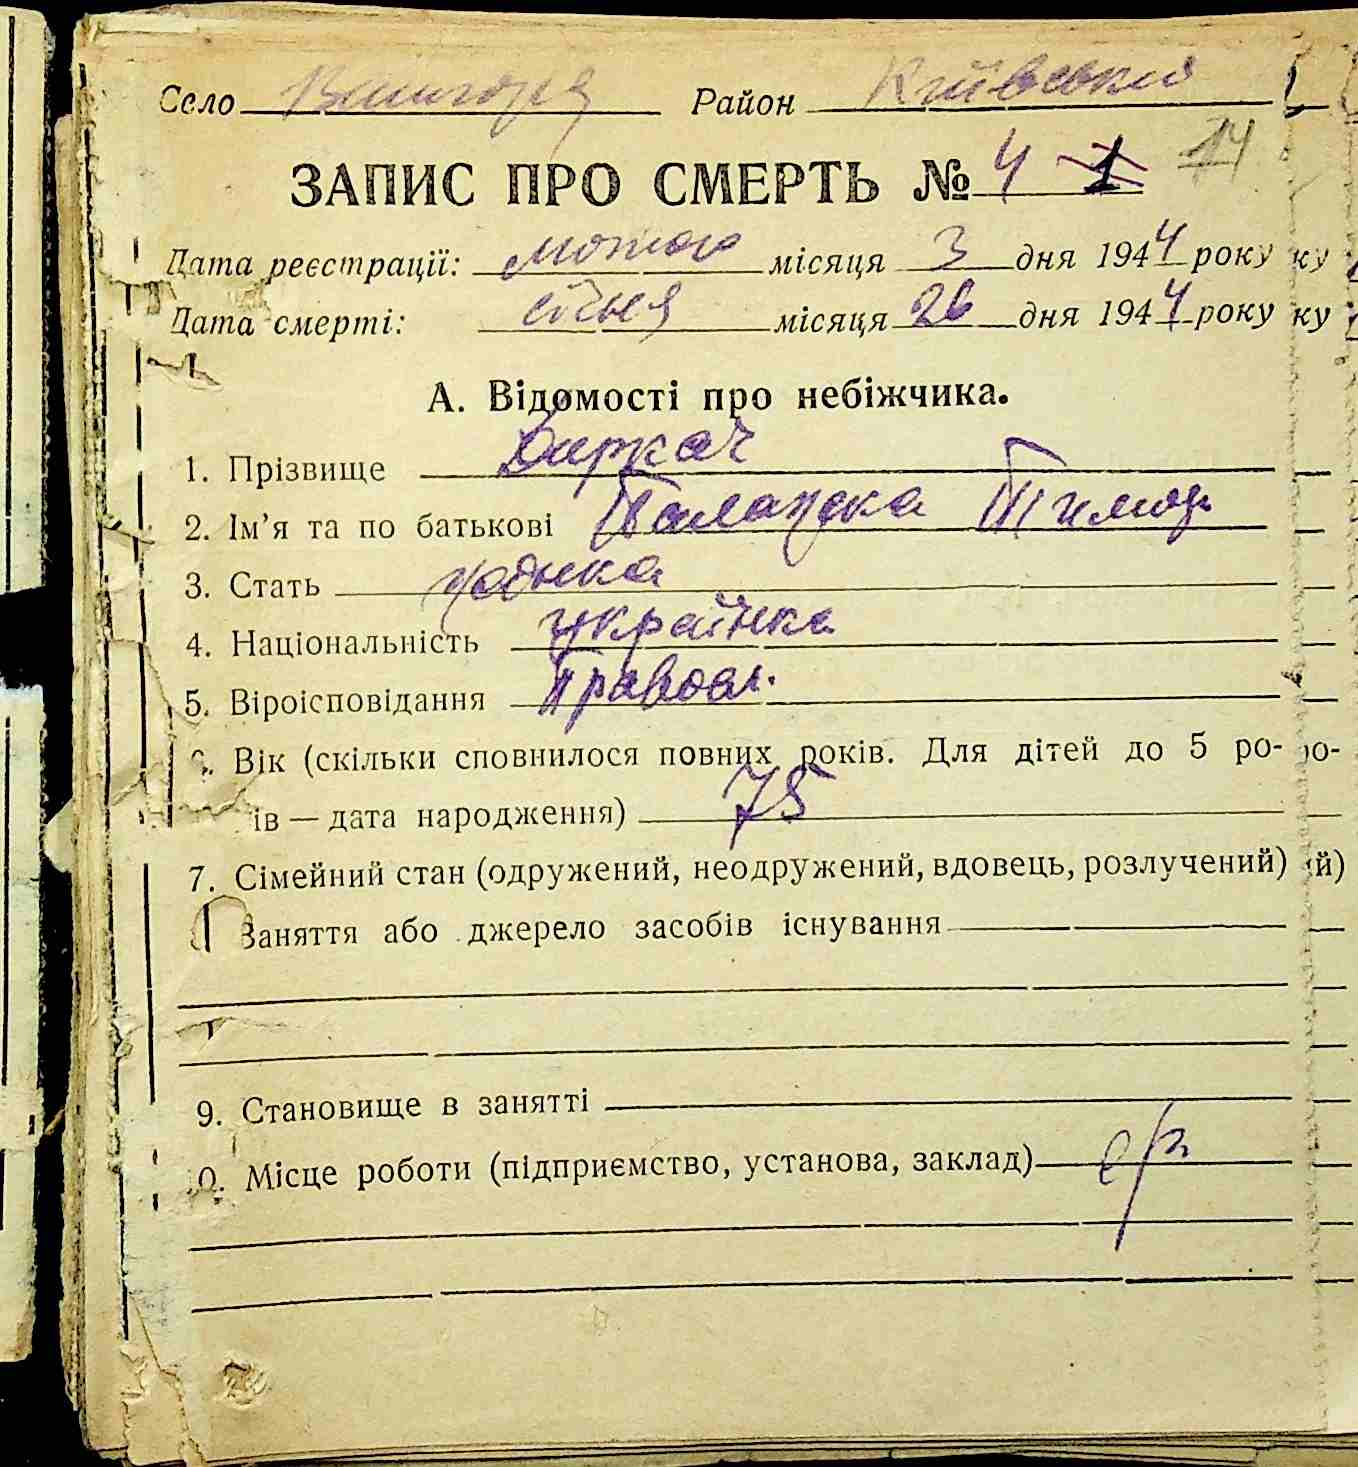 Село Вишгород Район Київський
ЗАПИС ПРО СМЕРТЬ № 4 1 14
Дата реєстрації: лютого місяця 3 дня 1944 року ку
Дата смерті: січня місяця 26 дня 1944 року ку
А. Відомості про небіжчика.
1. Прізвище Диркач
2. Ім’я та по батькові Палажка Тимоф
3. Стать
4. Національність українка
5. Віроісповідання Правосл.
Вік (скільки сповнилося повних років. Для дітей до 5 ро- ро-
ів — дата народження) 75
7. Сімейний стан (одружений, неодружений, вдовець, розлучений) й)
Заняття або джерело засобів існування
9. Становище в занятті
0. Місце роботи (підприємство, установа, заклад)